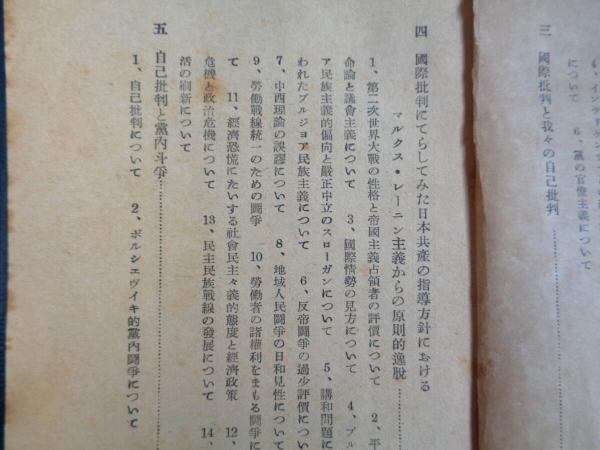 4、イン
について 6、黨の官僚主義について
三 國際批判と我々の自己批判
四 國際批判にてらしてみた日本共産の指導方針における
マルクス・レーニン主義からの原則的逸脱
1、第二次世界大戰の性格と帝國主義占領者の評價について 2、平
命論と議會主義について 3、國際情勢の見方について 4、ブル
ア民族主義的偏向と嚴正中立のスローガンについて 5、講和問題に
われたブルジョア民族主義について 6、反帝鬪爭の過少評價につい
7、中西理論の誤謬について 8、地域人民鬪爭の日和見性について
9、勞働戰線統一のための鬪爭 10、勞働者の諸權利をまもる鬪爭に
て 11、經濟恐慌にたいする社會民主々義的態度と經濟政策 12、
危機と政治危機について 13、民主民族戰線の發展について 14、
活の刷新について
五 自己批判と黨內斗爭
1、自己批判について 2、ボルシェヴィキ的黨內鬪爭について